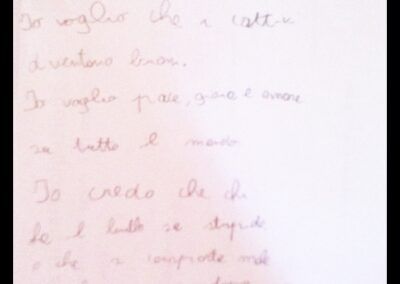 Io voglio che i catti
diventano buoni.
Io voglio pace, gioia e amore
su tutto il mondo
Io credo che chi
fa il bullo se stupido
o che si comporta male